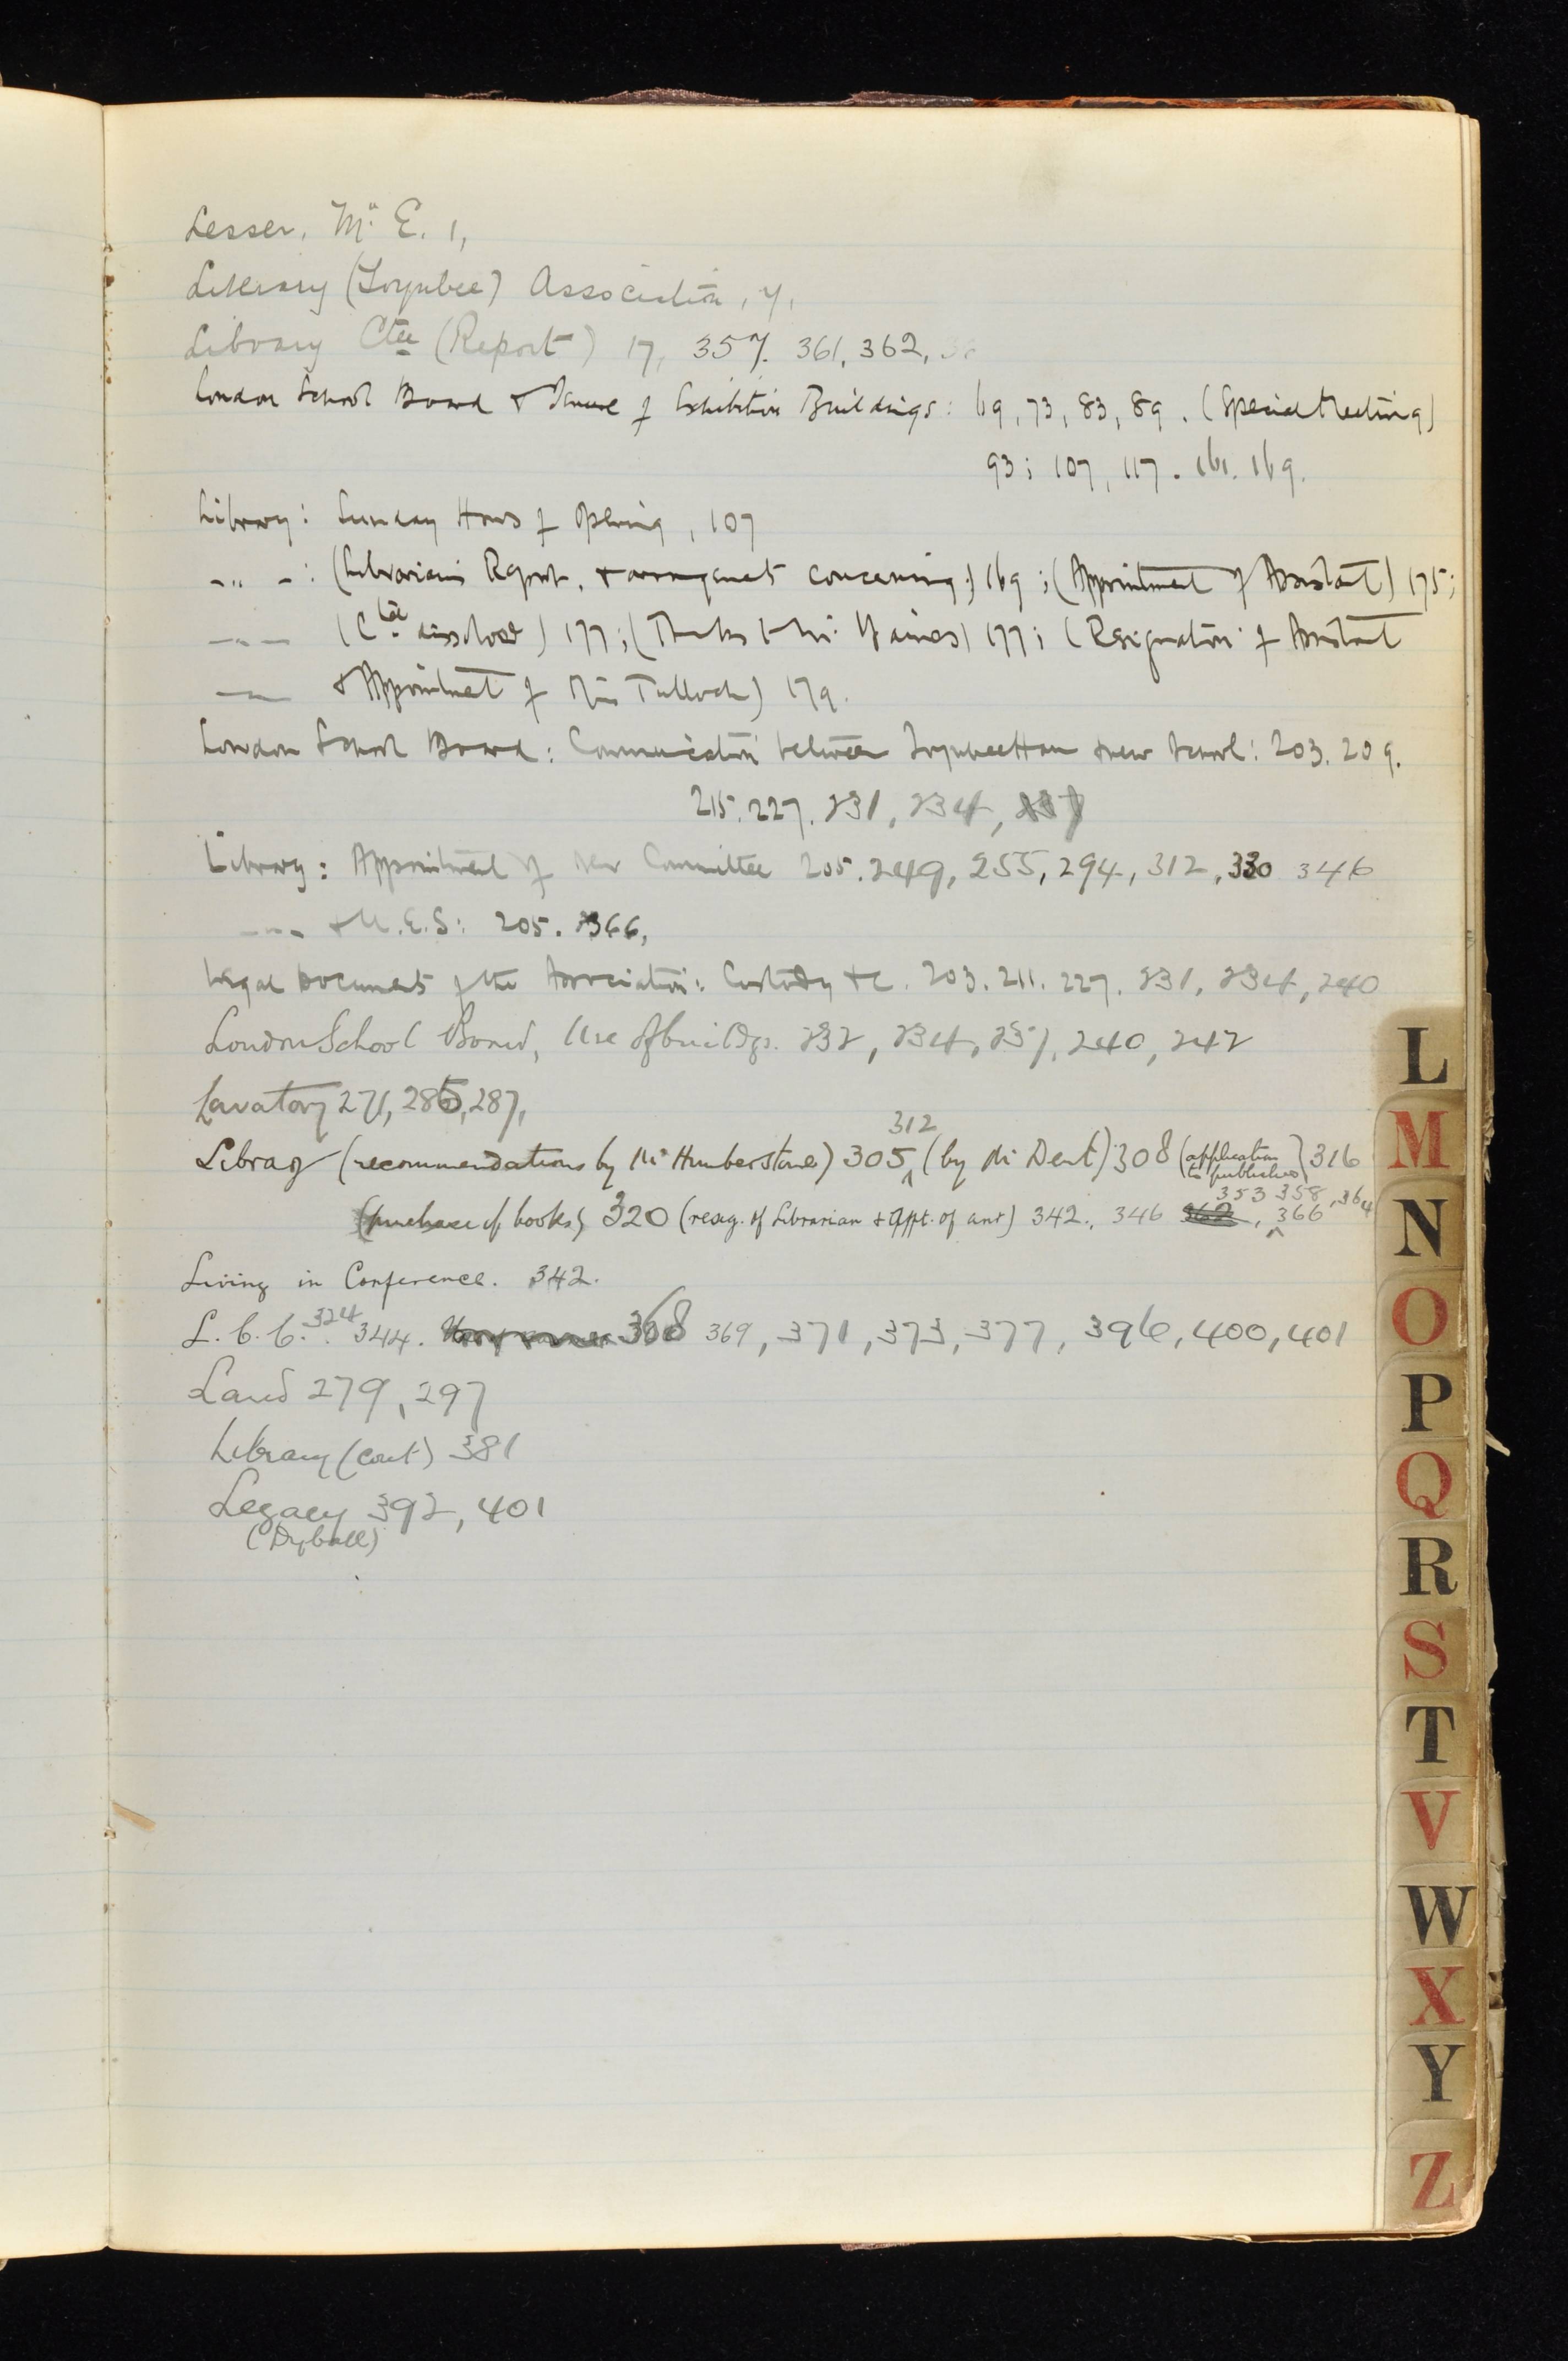 Lesser, Mr. E. 1,
Literary (Toynbee) Association, 7,
Library Ctee (Report) 17, 357. 361, 362,
London School Board & Tenure of Exhibition Buildings: 69, 73, 83, 89. (Special Meeting)
93; 107, 117. 161. 169.
Library: Sunday Hours of Opening, 107
-"-: (Librarian's Report, & arrangements concerning) 169; (Appointment of Assistant) 175;
-"- (Ctee dissolved) 177; (Thanks to Mr. Haines) 177; (Resignation of Assistant
-"- & Appointment of Miss Tulloch) 179.
London School Board: Communication between Toynbee Hall & new School: 203. 209.
215. 227. 231, 234, 237
Library: Appointment of New Committee 205. 249, 255, 294, 312, 330 346
-"- & U.E.S: 205. 366,
Legal Documents of the Association: Custody &c. 203. 211. 227. 231, 234, 240
London School Board, Use of buildgs. 232, 234, 237, 240, 242
Lavatory 271, 285, 287,
312
Library (recommendations by Mr Humberstone) 305, (by Mr Dent) 308 (application to publishers) 316
353 358, 364
(purchase of books) 320 (resig. of Librarian & appt. of anr) 342., 346 362, 366
Living in Conference. 342.
L.C.C. 324. 344. 368 369, 371, 373, 377, 396, 400, 401
Land 279, 297
Library (cont) 381
Legacy 392, 401
(Dyball)
L
M
N
O
P
Q
R
S
T
V
W
X
Y
Z